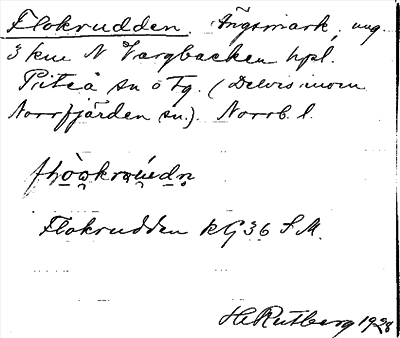 Flokrudden Ängsmark, ung.
3 km N Vargbacken hpl.
Piteå sn o Tg. (Delvis inom
Norrfjärden sn.). Norrb. l.
Flokrudden KG 36 S.M.
H Rutberg 1928